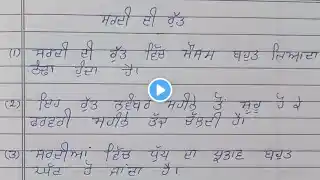 ਸਰਦੀ ਦੀ ਰੁੱਤ
(1) ਸਰਦੀ ਦੀ ਰੁੱਤ ਵਿੱਚ ਮੌਸਮ ਬਹੁਤ ਜਿਆਦਾ
ਠੰਢਾ ਹੁੰਦਾ ਹੈ।
(2) ਇਹ ਰੁੱਤ ਨਵੰਬਰ ਮਹੀਨੇ ਤੋਂ ਸ਼ੁਰੂ ਹੋ ਕੇ
ਫਰਵਰੀ ਮਹੀਨੇ ਤੱਕ ਚੱਲਦੀ ਹੈ।
(3) ਸਰਦੀਆਂ ਵਿੱਚ ਧੁੱਪ ਦਾ ਪ੍ਰਭਾਵ ਬਹੁਤ
ਘੱਟ ਹੋ ਜਾਂਦਾ ਹੈ।